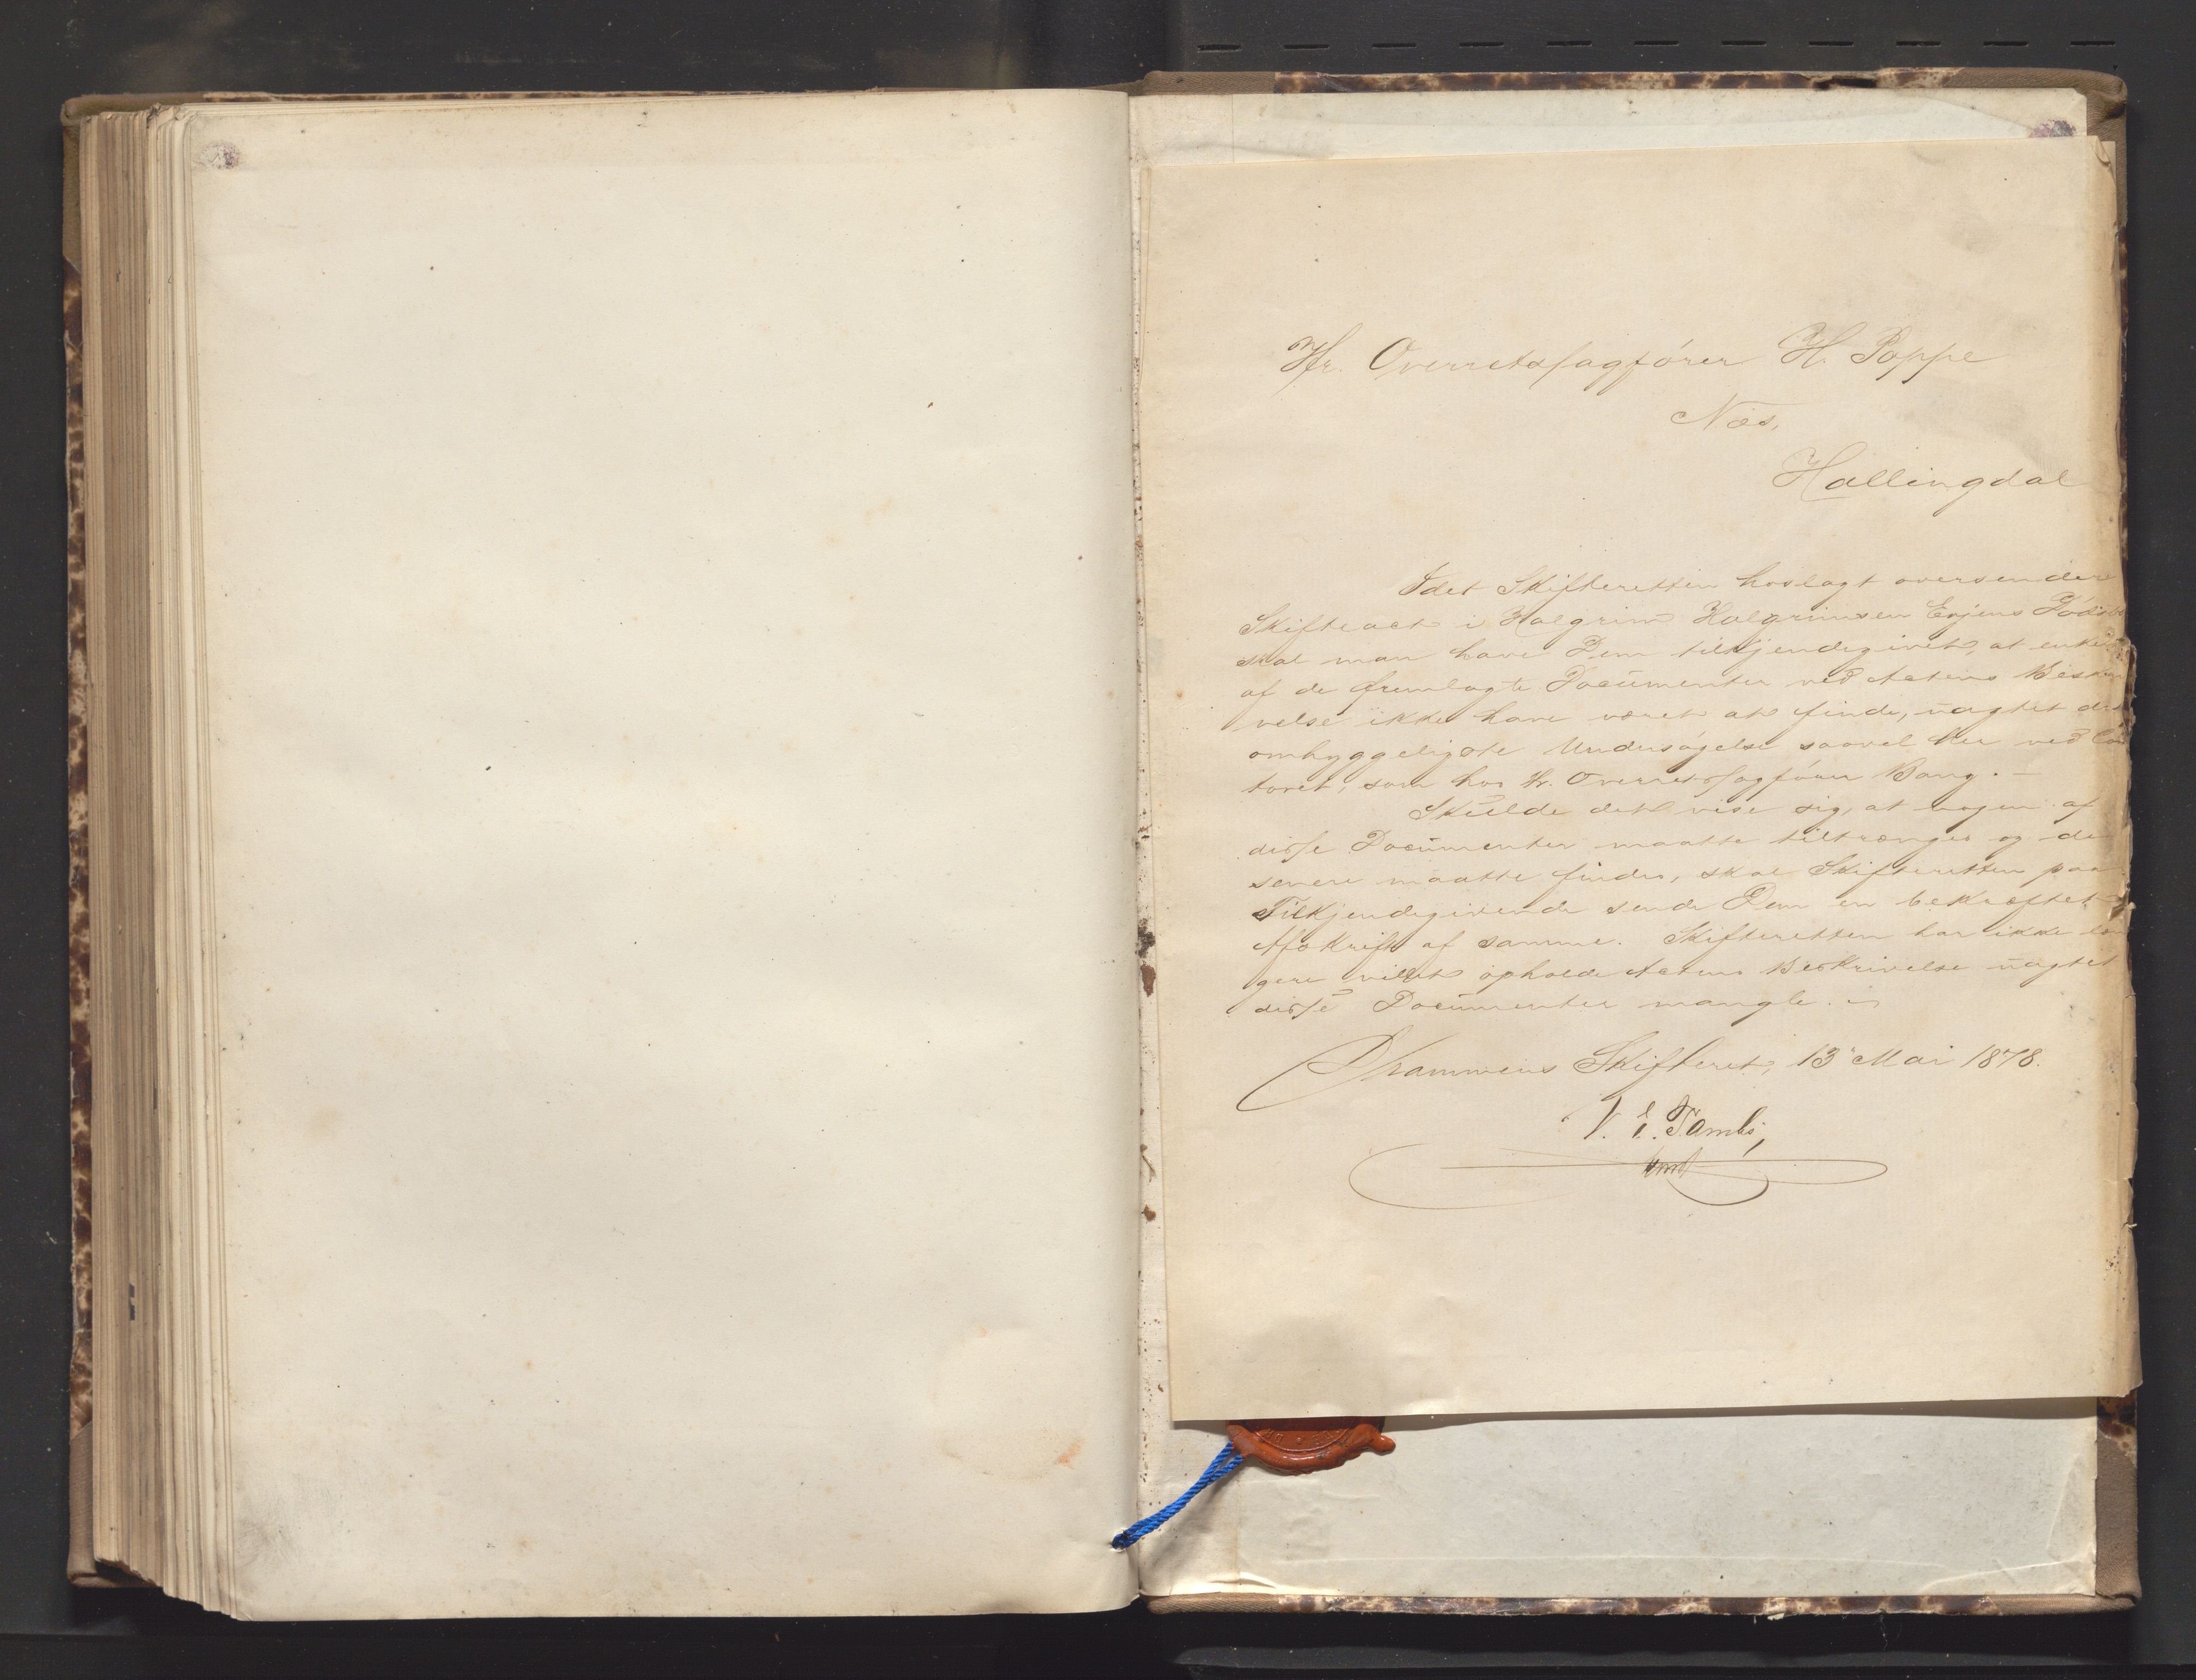 Hr. Overretssagfører H. Poppe
Næs,
Hallingdal
Idet Skifteretten hoslagt oversender
Skifteact i Halgrim Halgrimsen Eijens Dødsbo
skal man have Dem tilkjendegivet, at enkelte
af de fremlagte Documenter ved Actens Beskri
velse ikke have været at finde, uagtet den
omhyggeligste Undersøgelse saavel her ved Con
toret, som hos Hr. Overretssagfører Bang. –
Skulde det vise sig, at nogen af
disse Documenter maatte tiltrænges og de
senere maatte findes, skal Skifteretten paa
Tilkjendegivende sende Dem en bekræftet
Afskrift af samme. Skifteretten har ikke læn
gere villet opholde Actens Beskrivelse uagtet
disse Documenter mangle.
Drammens Skifteret, 13 Mai 1878.